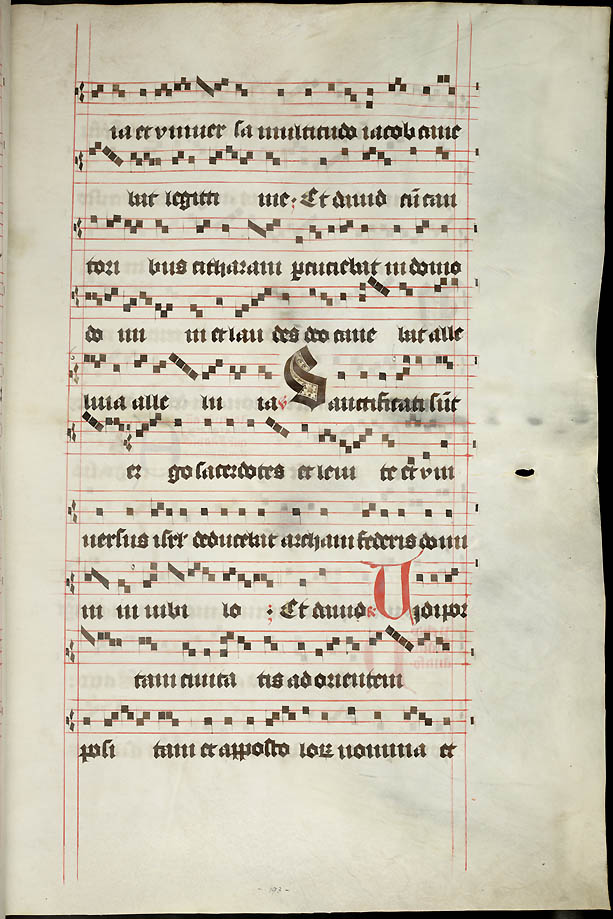 ia et vniuer sa multitudo iacob cane
bat legitti me ; Et dauid cū can
tori bus citharam ꝑcuciebat in domo
do mi ni et lau des deo cane bat alle
luia alle lu ia Sanctificati sūt
er go sacerdotes et leui te et vni
uersus isrł deducebat archam federis domi
ni in iubi lo ; Et dauid Ad por
tam ciuita tis ad orientem
posi tam et apposto loꝝ nomina et
193